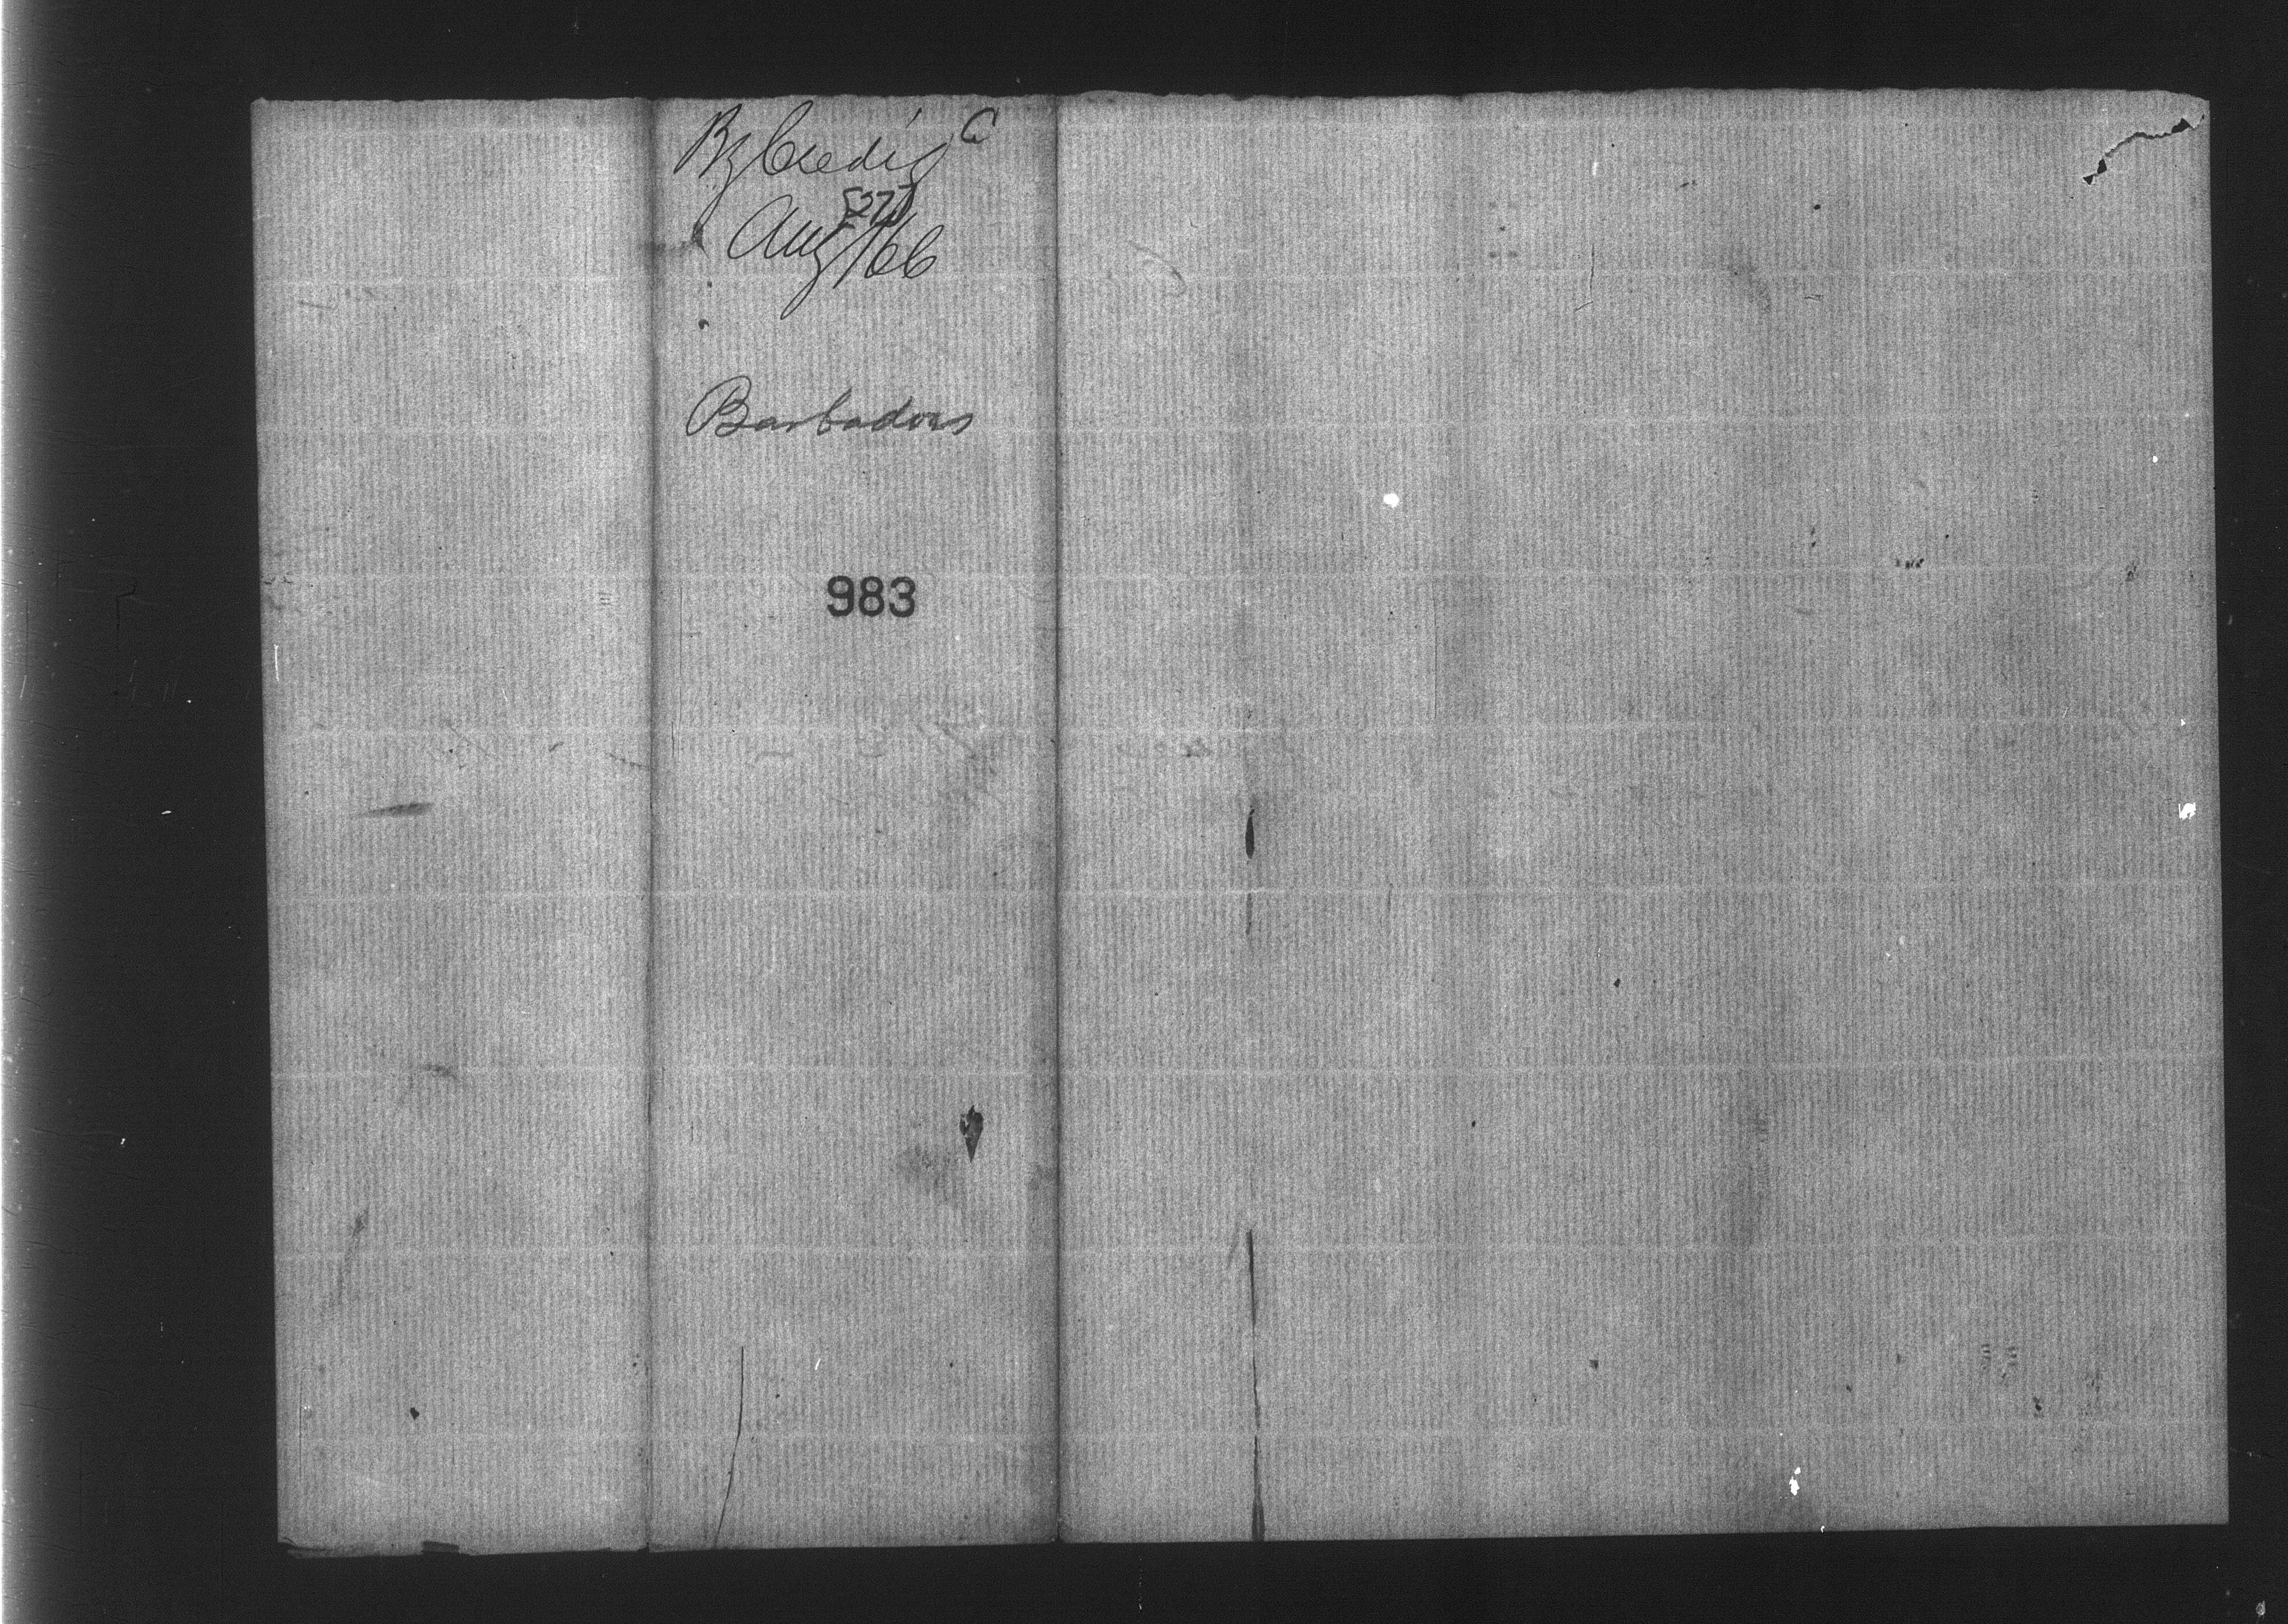 By Credit C
Aug/66
Barbadoes
983